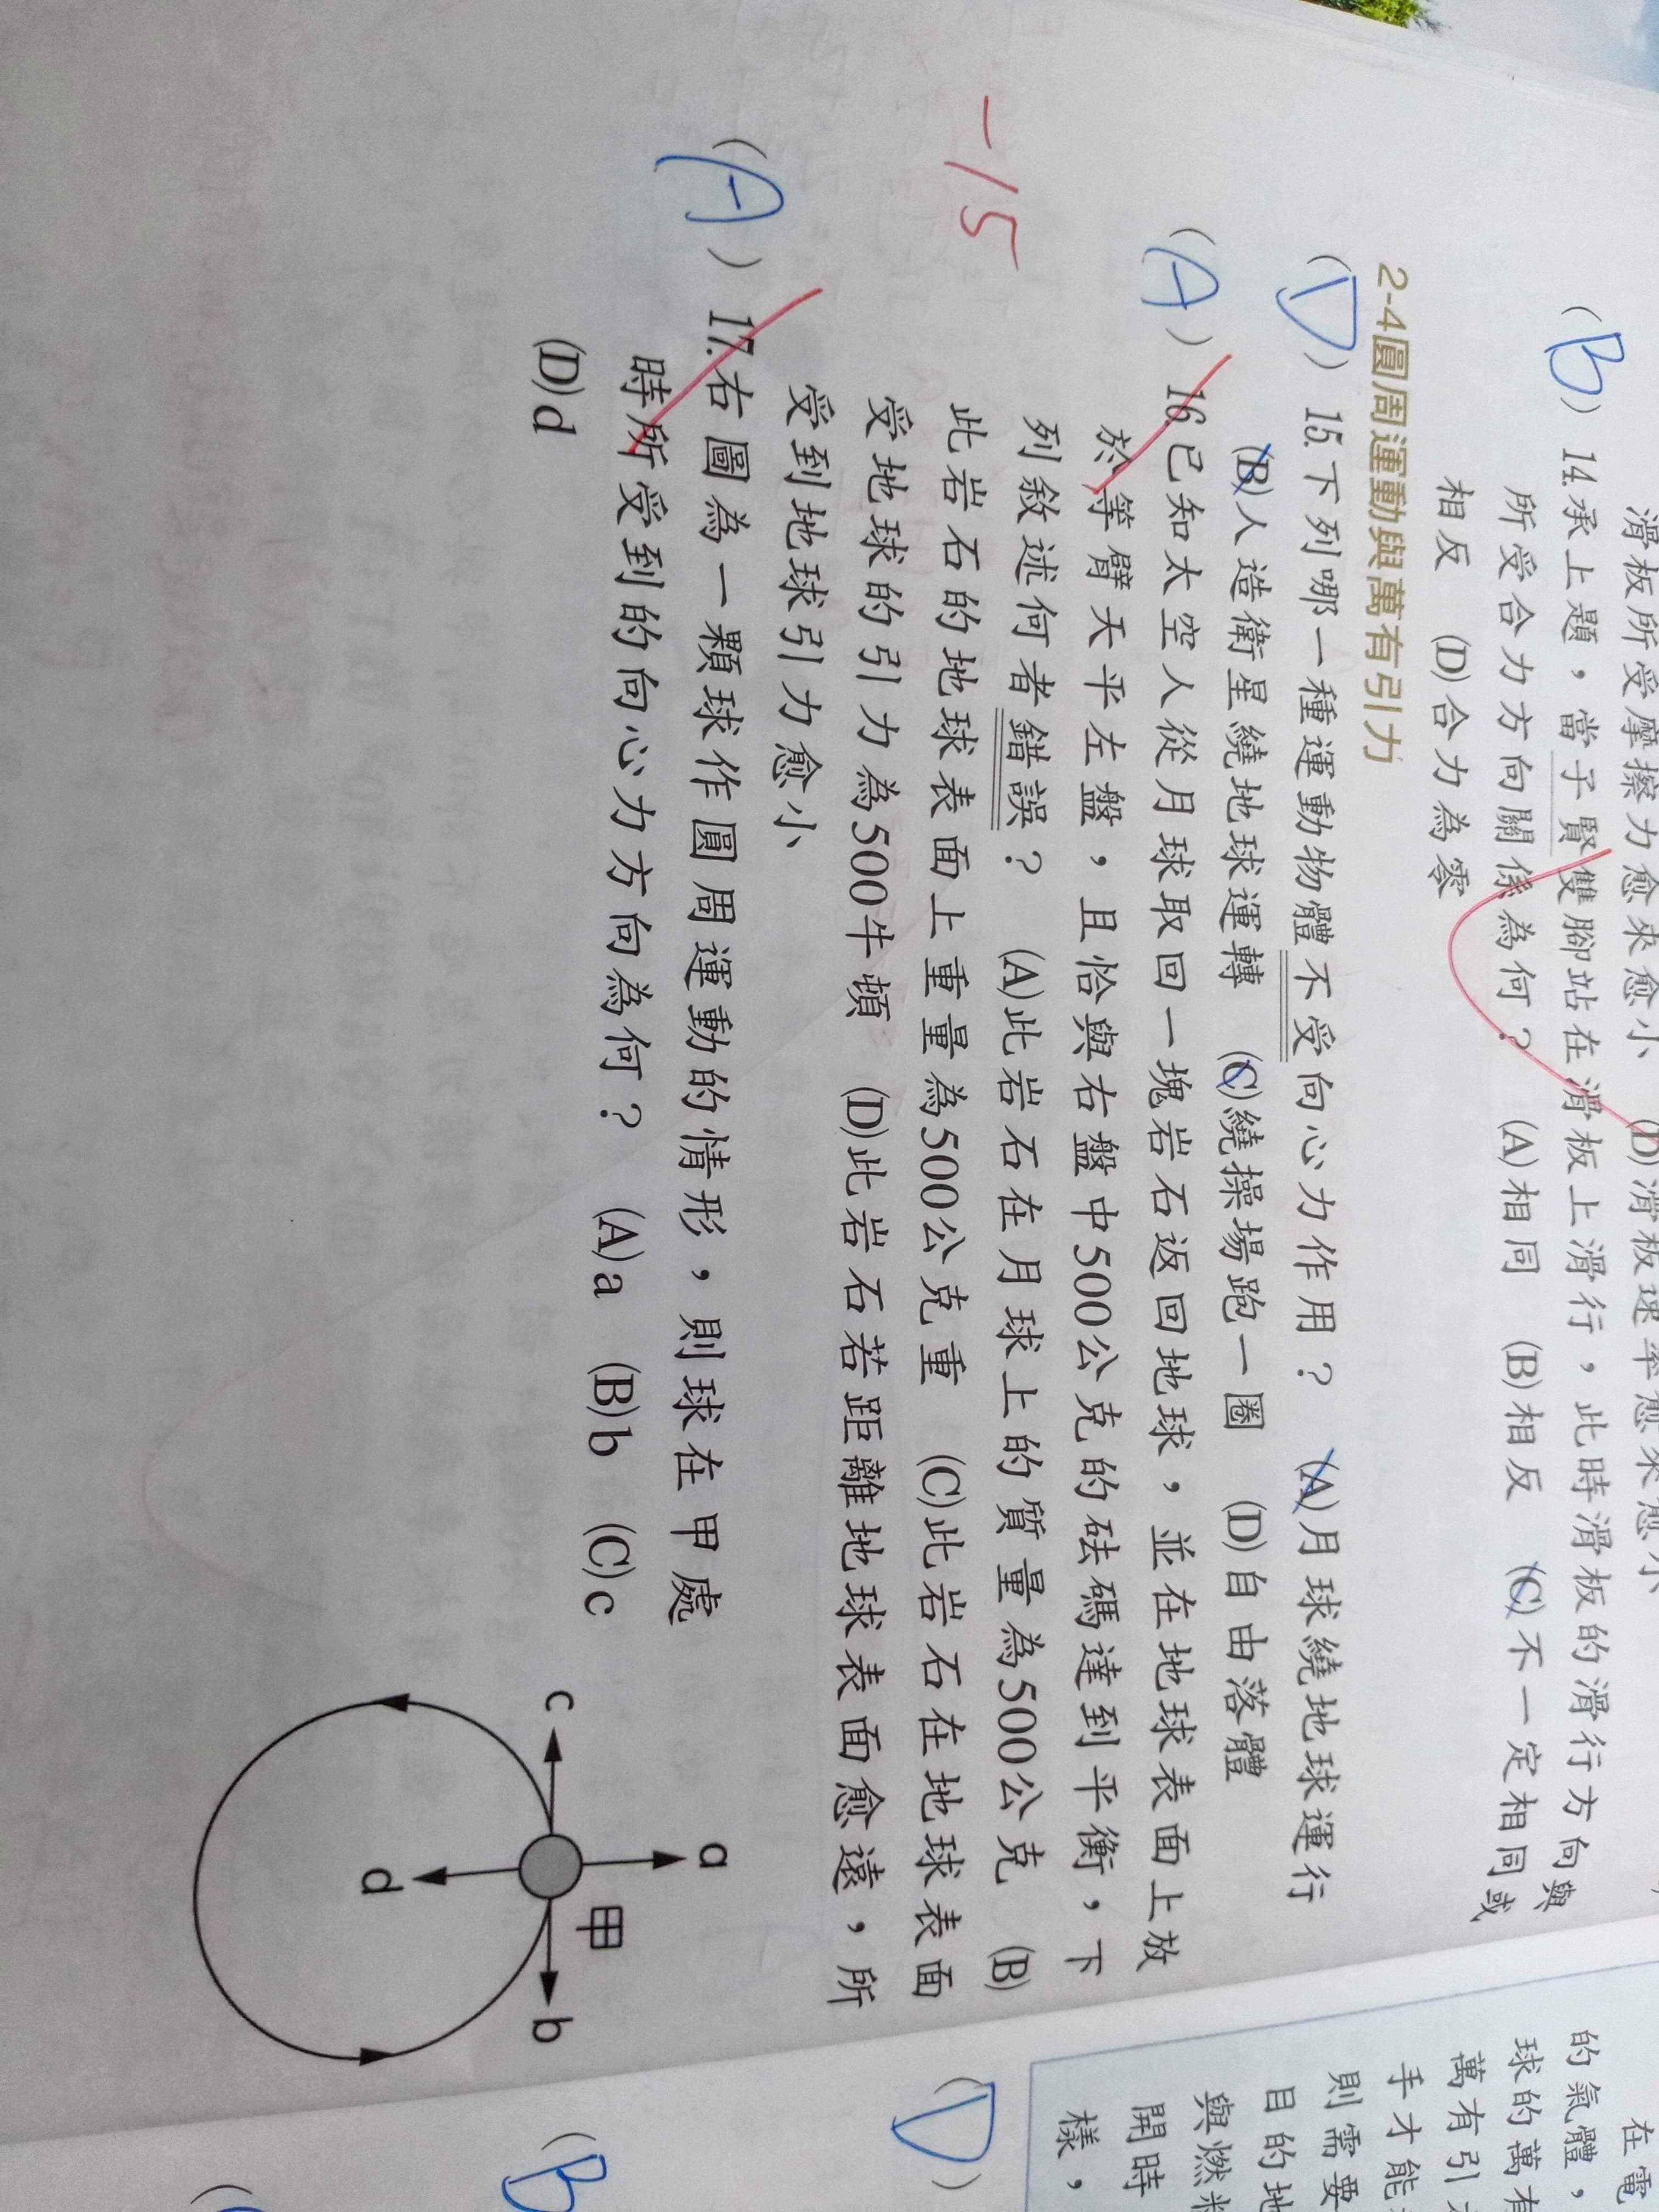 滑板所受摩擦力愈來愈小 (D)滑板速率愈來愈小
(B) 14.承上題，當子賢雙腳站在滑板上滑行，此時滑板的滑行方向與
所受合力方向關係為何？ (A)相同 (B)相反 (C)不一定相同或
相反 (D)合力為零
2-4圓周運動與萬有引力
(D) 15.下列哪一種運動物體不受向心力作用？ (A)月球繞地球運行
(B)人造衛星繞地球運轉 (C)繞操場跑一圈 (D)自由落體
(A) 16.已知太空人從月球取回一塊岩石返回地球，並在地球表面上放
於等臂天平左盤，且恰與右盤中500公克的砝碼達到平衡，下
列敘述何者錯誤？ (A)此岩石在月球上的質量為500公克 (B)
此岩石的地球表面上重量為500公克重 (C)此岩石在地球表面
受地球的引力為500牛頓 (D)此岩石若距離地球表面愈遠，所
受到地球引力愈小
-15
(A) 17.右圖為一顆球作圓周運動的情形，則球在甲處
時所受到的向心力方向為何？ (A)a (B)b (C)c
(D)d
a
甲
c
b
d
在電
的氣體，
球的萬有
萬有引
手才能
則需要
目的地
與燃料
開時
樣，
(D)
(B